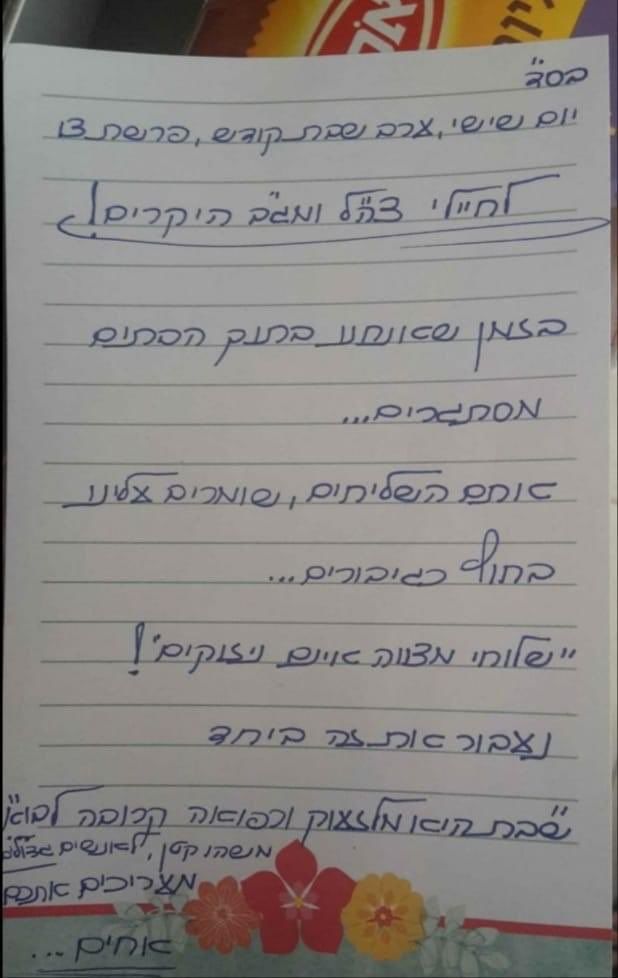 בסד"
יום שישי, ערב שבת קודש, פרשת צו
לחיילי צה"ל ומג"ב היקרים!
בזמן שאנחנו בתוך הבתים
מסתגרים...
אתם השליחים, שומרים עלינו
בחוץ כגיבורים...
"שלוחי מצווה אינם ניזוקים"!
נעבור את זה ביחד
שבת היא מלזעוק ורפואה קרובה לבוא"
משהו קטן, לאנשים גדולים
מעריכים אתכם
אחים ...